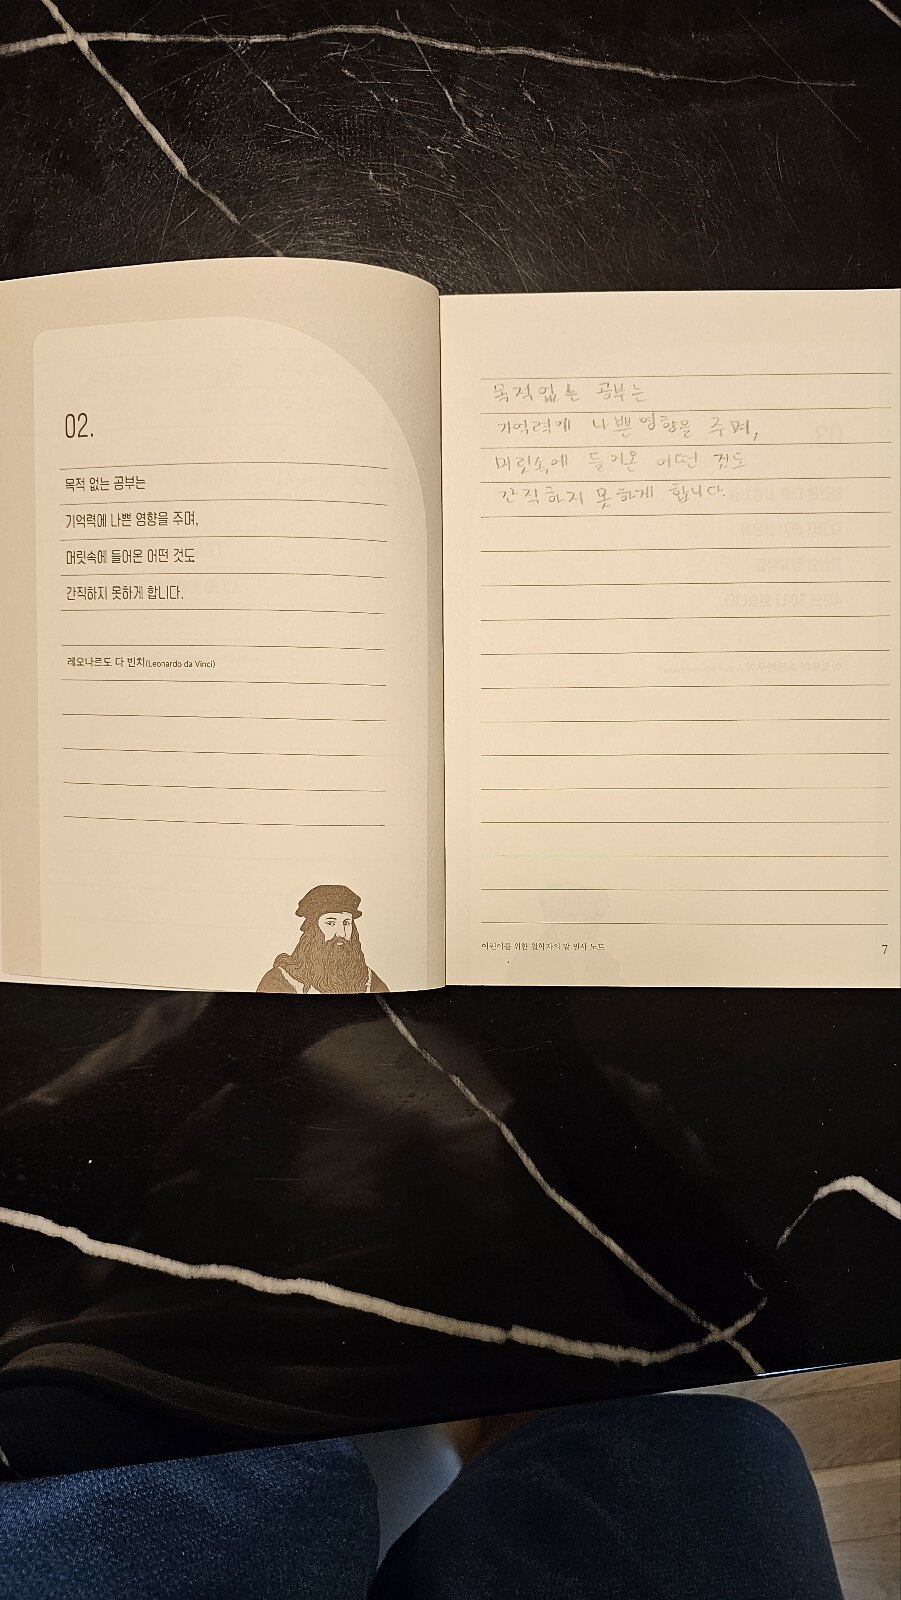 02.
목적 없는 공부는
기억력에 나쁜 영향을 주며,
머릿속에 들어온 어떤 것도
간직하지 못하게 합니다.
레오나르도 다 빈치(Leonardo da Vinci)
목적 없는 공부는
기억력에 나쁜 영향을 주며,
머릿속에 들어온 어떤 것도
간직하지 못하게 합니다.
어린이를 위한 철학자의 말 필사 노트
7